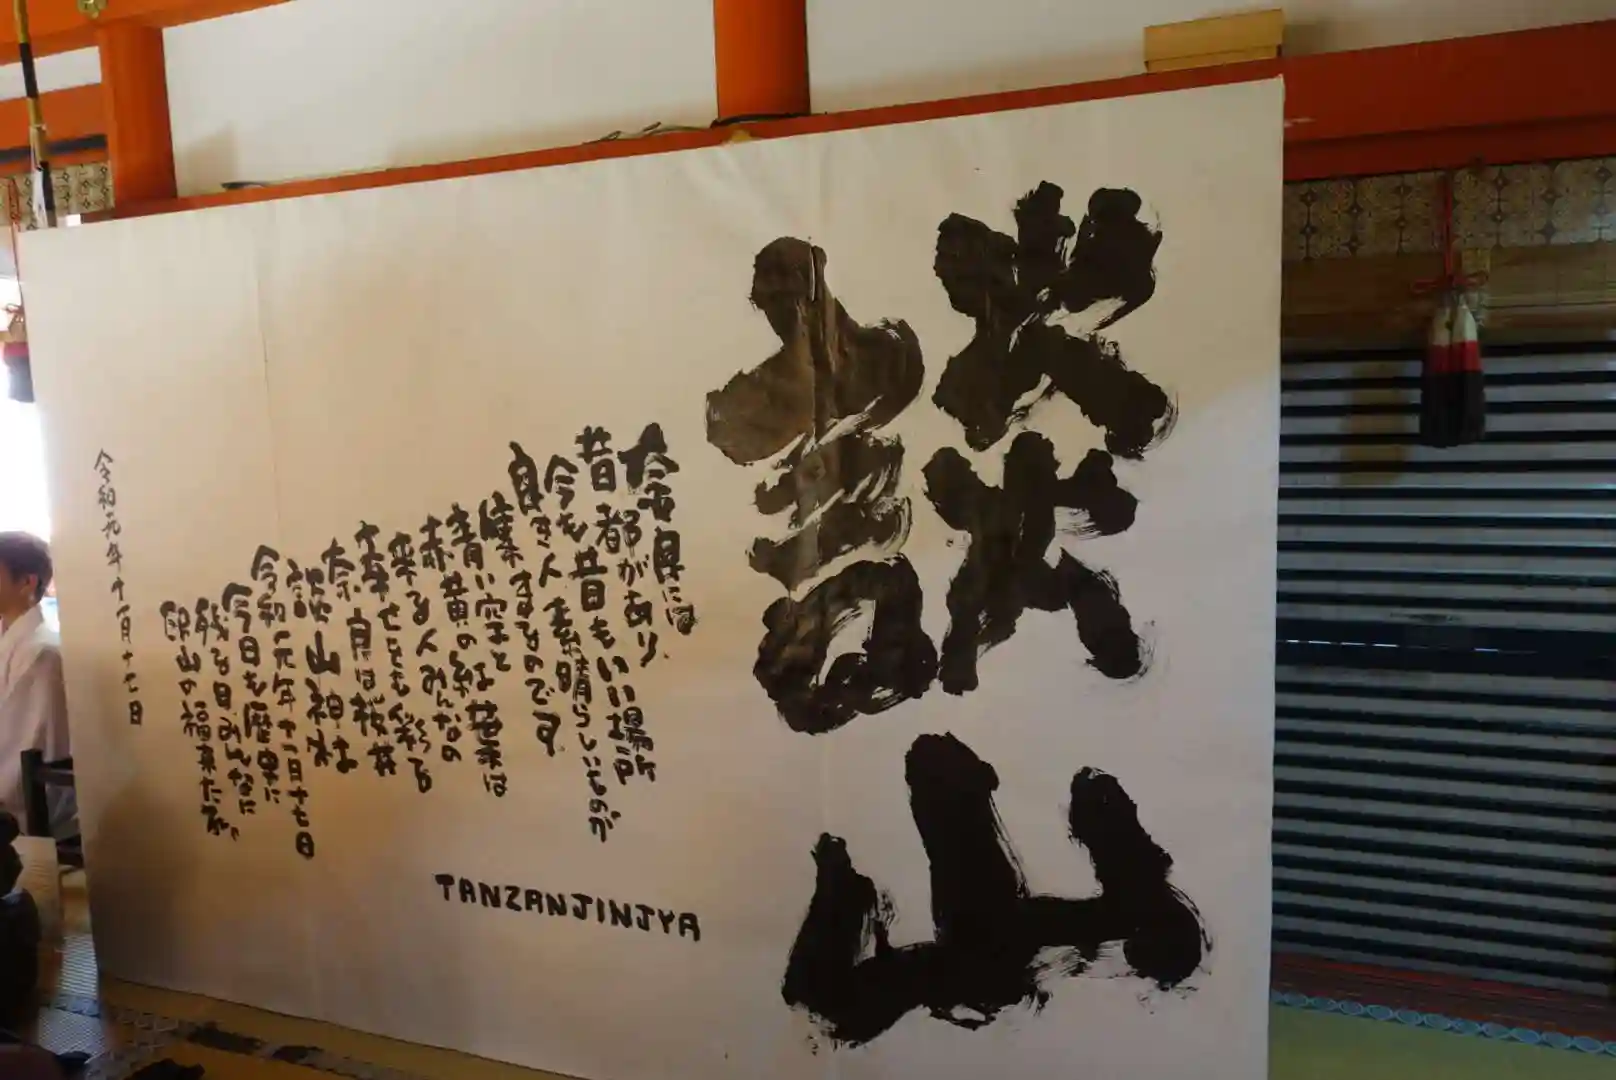 談山
奈良には
都があり、
昔も昔もいい場所
今も素晴らしいものが
良き人
集まるのです
青い空と紅葉は
赤黄の糸
来る人みんなの
幸せをも彩る
奈良は桜井
談山神社
令和元年十一月十七日
今日も歴史に
残る日みんなに
談山の福来たれ、
令和元年十一月十七日
TANZANJINJYA